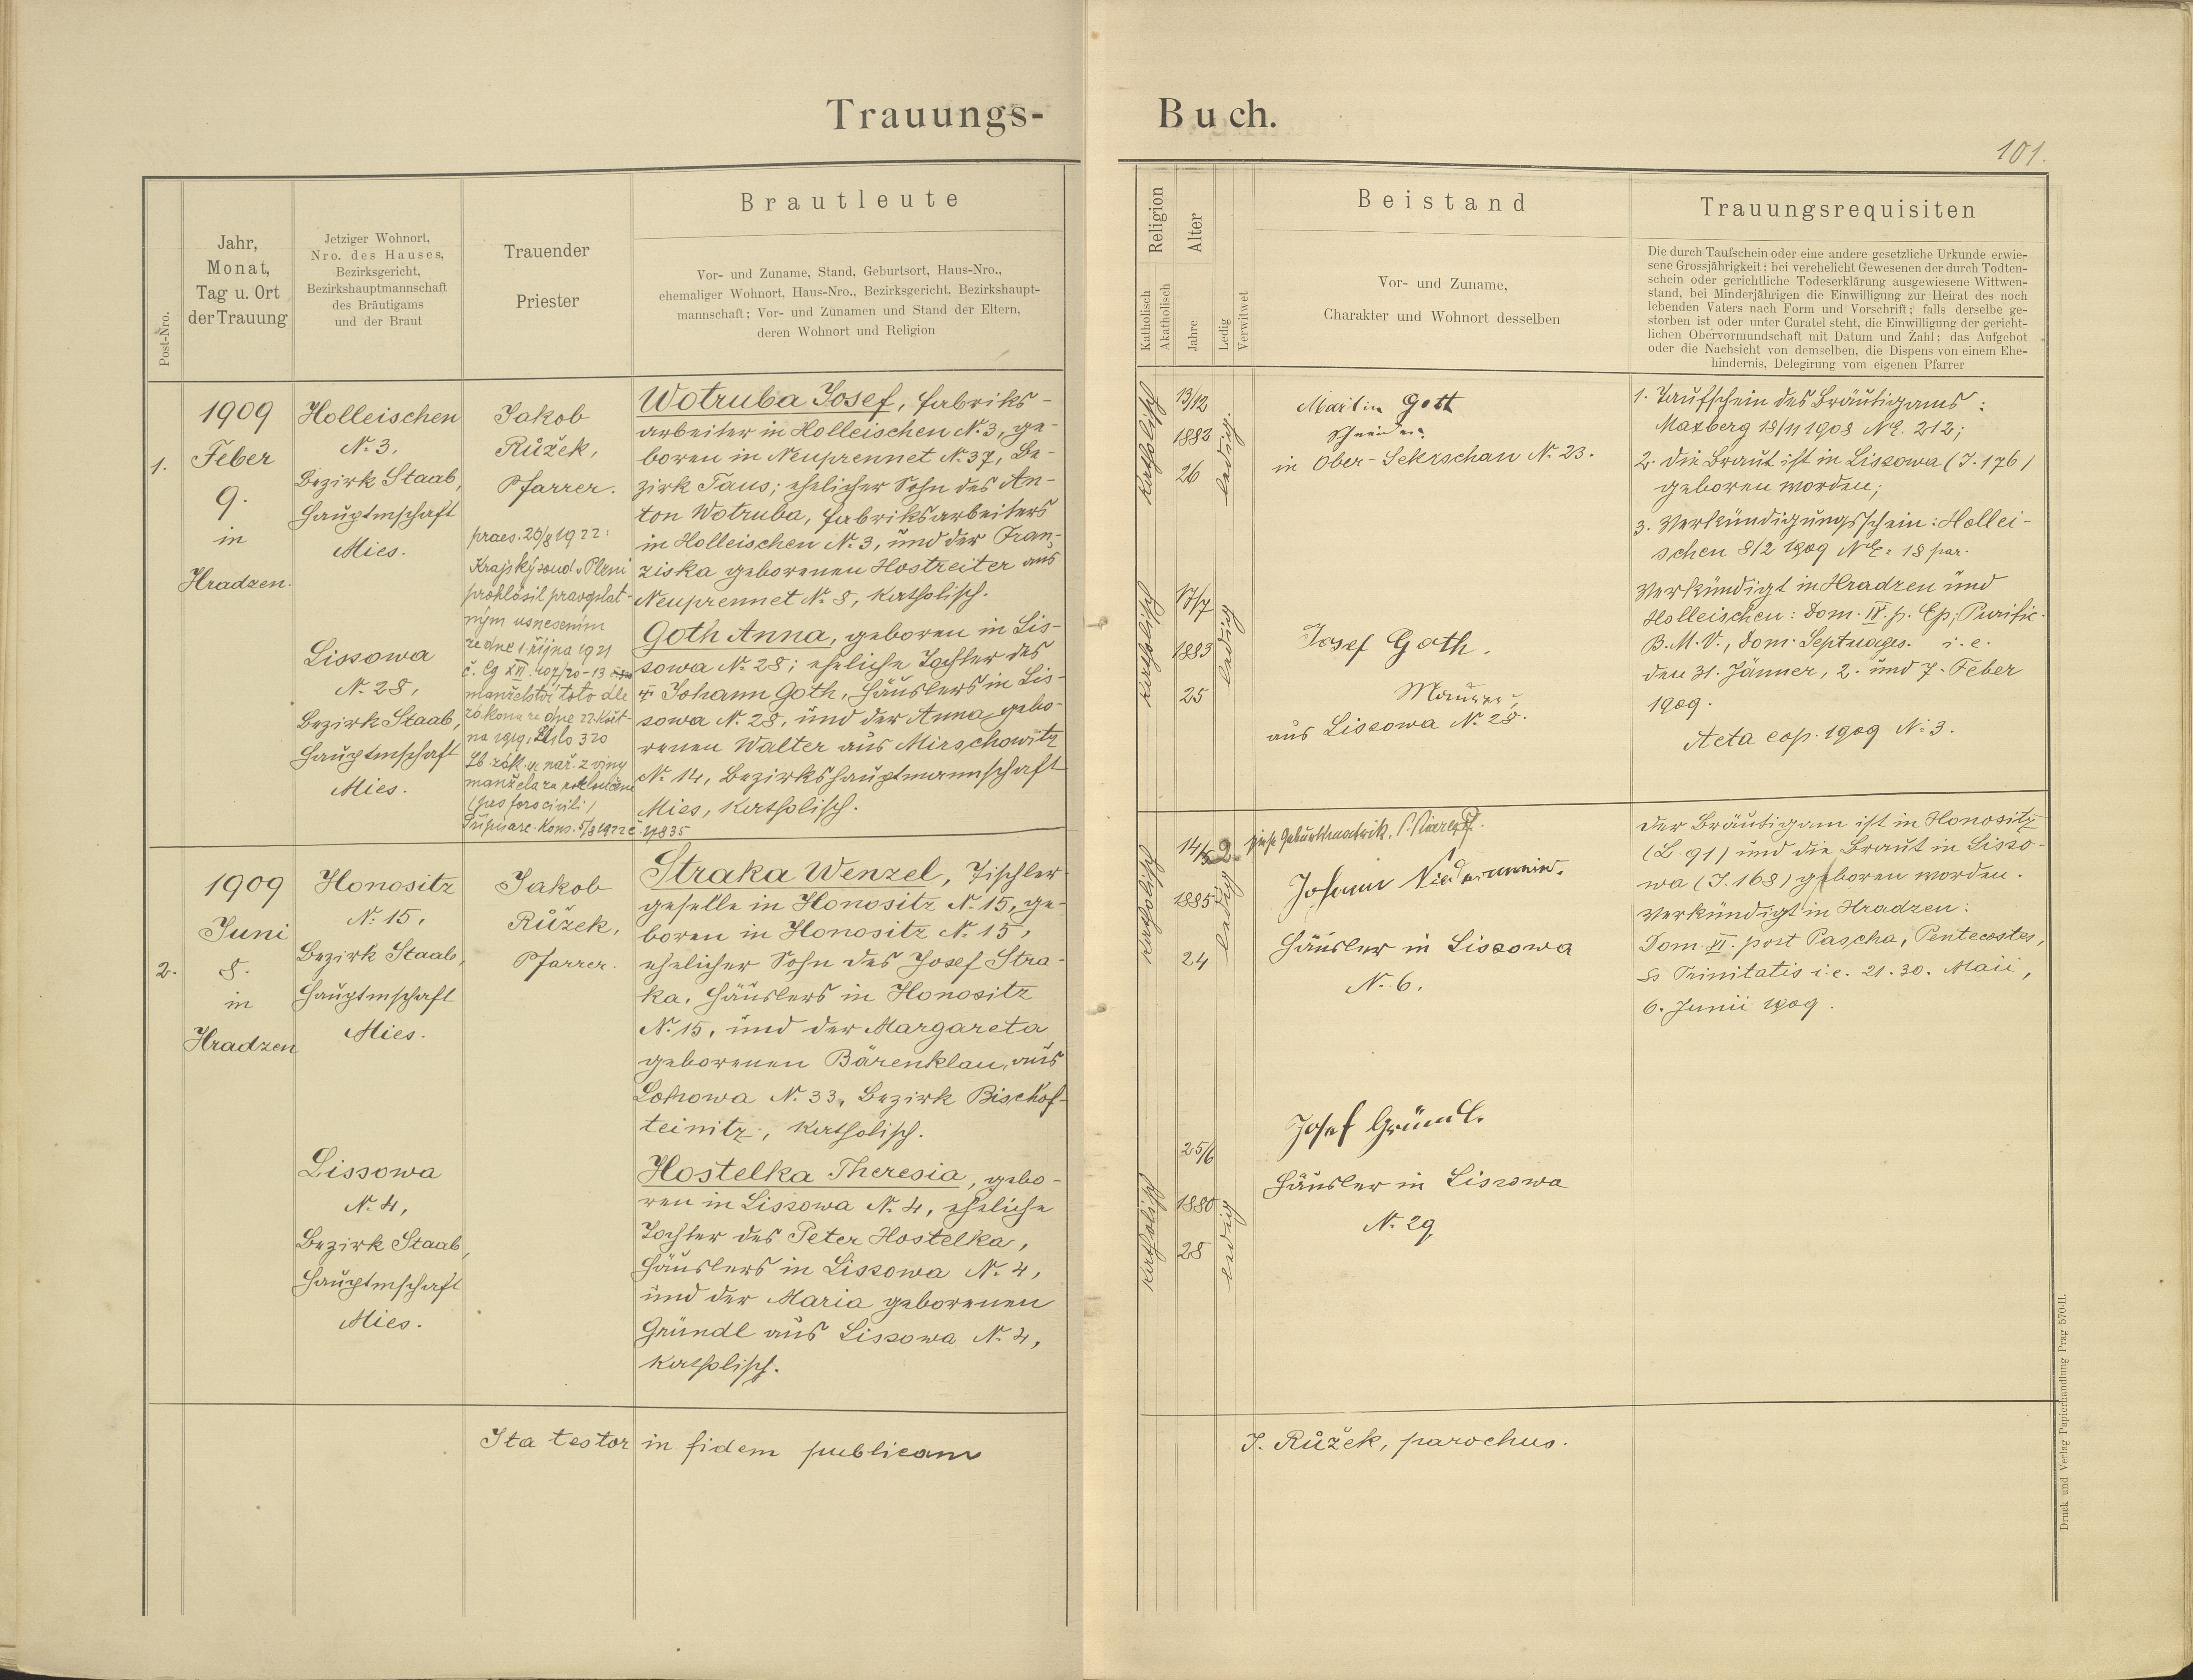 Trauungs-
Buch.
101.
Post-Nro.
Jahr,
Monat,
Tag u. Ort
der Trauung
Jetziger Wohnort,
Nro. des Hauses,
Bezirksgericht,
Bezirkshauptmannschaft
des Bräutigams
und der Braut
Trauender
Priester
Brautleute
Vor- und Zuname, Stand, Geburtsort, Haus-Nro.,
ehemaliger Wohnort, Haus-Nro., Bezirksgericht, Bezirkshaupt-
mannschaft; Vor- und Zunamen und Stand der Eltern,
deren Wohnort und Religion
Religion
Katholisch
Akatholisch
Alter
Jahre
Ledig
Verwitwet
Beistand
Vor- und Zuname,
Charakter und Wohnort desselben
Trauungsrequisiten
Die durch Taufschein oder eine andere gesetzliche Urkunde erwie-
sene Grossjährigkeit; bei verehelicht Gewesenen der durch Todten-
schein oder gerichtliche Todeserklärung ausgewiesene Wittwen-
stand, bei Minderjährigen die Einwilligung zur Heirat des noch
lebenden Vaters nach Form und Vorschrift; falls derselbe ge-
storben ist oder unter Curatel steht, die Einwilligung der gericht-
lichen Obervormundschaft mit Datum und Zahl; das Aufgebot
oder die Nachsicht von demselben, die Dispens von einem Ehe-
hindernis, Delegirung vom eigenen Pfarrer
1.
1909
Feber
9.
in
Hradzen.
Holleischen
N. 3,
Bezirk Staab,
Hauptmschaft
Mies.
Lissowa
N. 28,
Bezirk Staab,
Hauptmschaft
Mies.
Jakob
Růžek,
Pfarrer.
praes. 20/8 1922:
Krajský soud v Plzni
prohlásil pravoplat-
ným usnesením
ze dne 1. října 1921
č. Cg XVI. 407/20-13
manželství toto dle
zákona ze dne 22. květ-
na 1919, číslo 320
Sb. zák. a nař. z viny
manžela za rozloučené
(pro foro civili)
Přípis arc. Kons. 5/8 1922 č. 11835
Wotruba Josef, Fabriks-
arbeiter in Holleischen N. 3, ge-
boren in Neuprennet N. 37, Be-
zirk Taus; ehelicher Sohn des An-
ton Wotruba, Fabriksarbeiters
in Holleischen N. 3, und der Fran-
ziska geborenen Hostreiter aus
Neuprennet N. 8, katholisch.
Goth Anna, geboren in Lis-
sowa N. 28; eheliche Tochter des
Johann Goth, Häuslers in Lis-
sowa N. 28, und der Anna, gebo-
renen Walter aus Mirschowitz
N. 14, Bezirkshauptmannschaft
Mies, katholisch.
katholisch
13/12
1882
26
ledig.
katholisch
17/7
1883
25
ledig
Martin Gott
Schneider
in Ober-Sekrschan N. 23.
Josef Goth.
Maurer,
aus Lissowa N. 28.
1. Taufschein des Bräutigams:
Maxberg 18/11 1908 NE. 212;
2. die Braut ist in Lissowa (J. 176)
geboren worden;
3. Verkündigungsschein: Hollei-
schen 8/2 1909 NE. 18 par.
Verkündigt in Hradzen und
Holleischen: Dom. IV. p. Ep., Purific.
B. M. V., Dom. Septuages. i. e.
den 31. Jänner, 2. und 7. Feber
1909.
Acta cop. 1909 N. 3.
2.
1909
Juni
8.
in
Hradzen
Honositz
N. 15,
Bezirk Staab,
Hauptmschaft
Mies.
Lissowa
N. 4,
Bezirk Staab,
Hauptmschaft
Mies.
Jakob
Růžek,
Pfarrer.
Straka Wenzel, Tischler-
geselle in Honositz N. 15, ge-
boren in Honositz N. 15,
ehelicher Sohn des Josef Stra-
ka, Häuslers in Honositz
N. 15, und der Margareta
geborenen Bärenklau, aus
Lohowa N. 33, Bezirk Bischof-
teinitz, katholisch.
Hostelka Theresia, gebo-
ren in Lissowa N. 4, eheliche
Tochter des Peter Hostelka,
Häuslers in Lissowa N. 4,
und der Maria geborenen
Gründl aus Lissowa N. 4,
katholisch.
katholisch
14/5 2.
1885
24
ledig
katholisch
25/6
1880
28
ledig
siehe Geburtsmatrik,
Johann
Häusler in Lissowa
N. 6.
Josef Gründl.
Häusler in Lissowa
N. 29,
Der Bräutigam ist in Honositz
(L. 91) und die Braut in Lisso-
wa (J. 168) geboren worden.
Verkündigt in Hradzen:
Dom. VI. post Pascha, Pentecostes,
Ss Trinitatis i. e. 21. 30. Maii,
6. Junii 1909.
Ita testor in fidem publicam
J. Růžek, parochus.
Druck und Verlag Papierhandlung Prag 570-II.